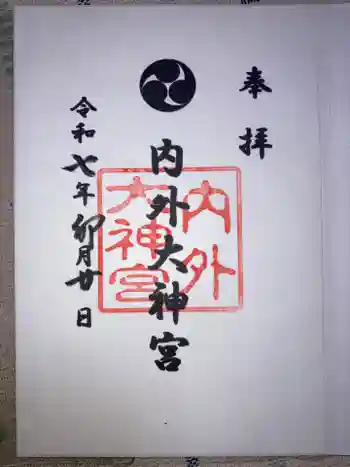 奉拝
内外大神宮
内外
大神宮
令和七年卯月廿日